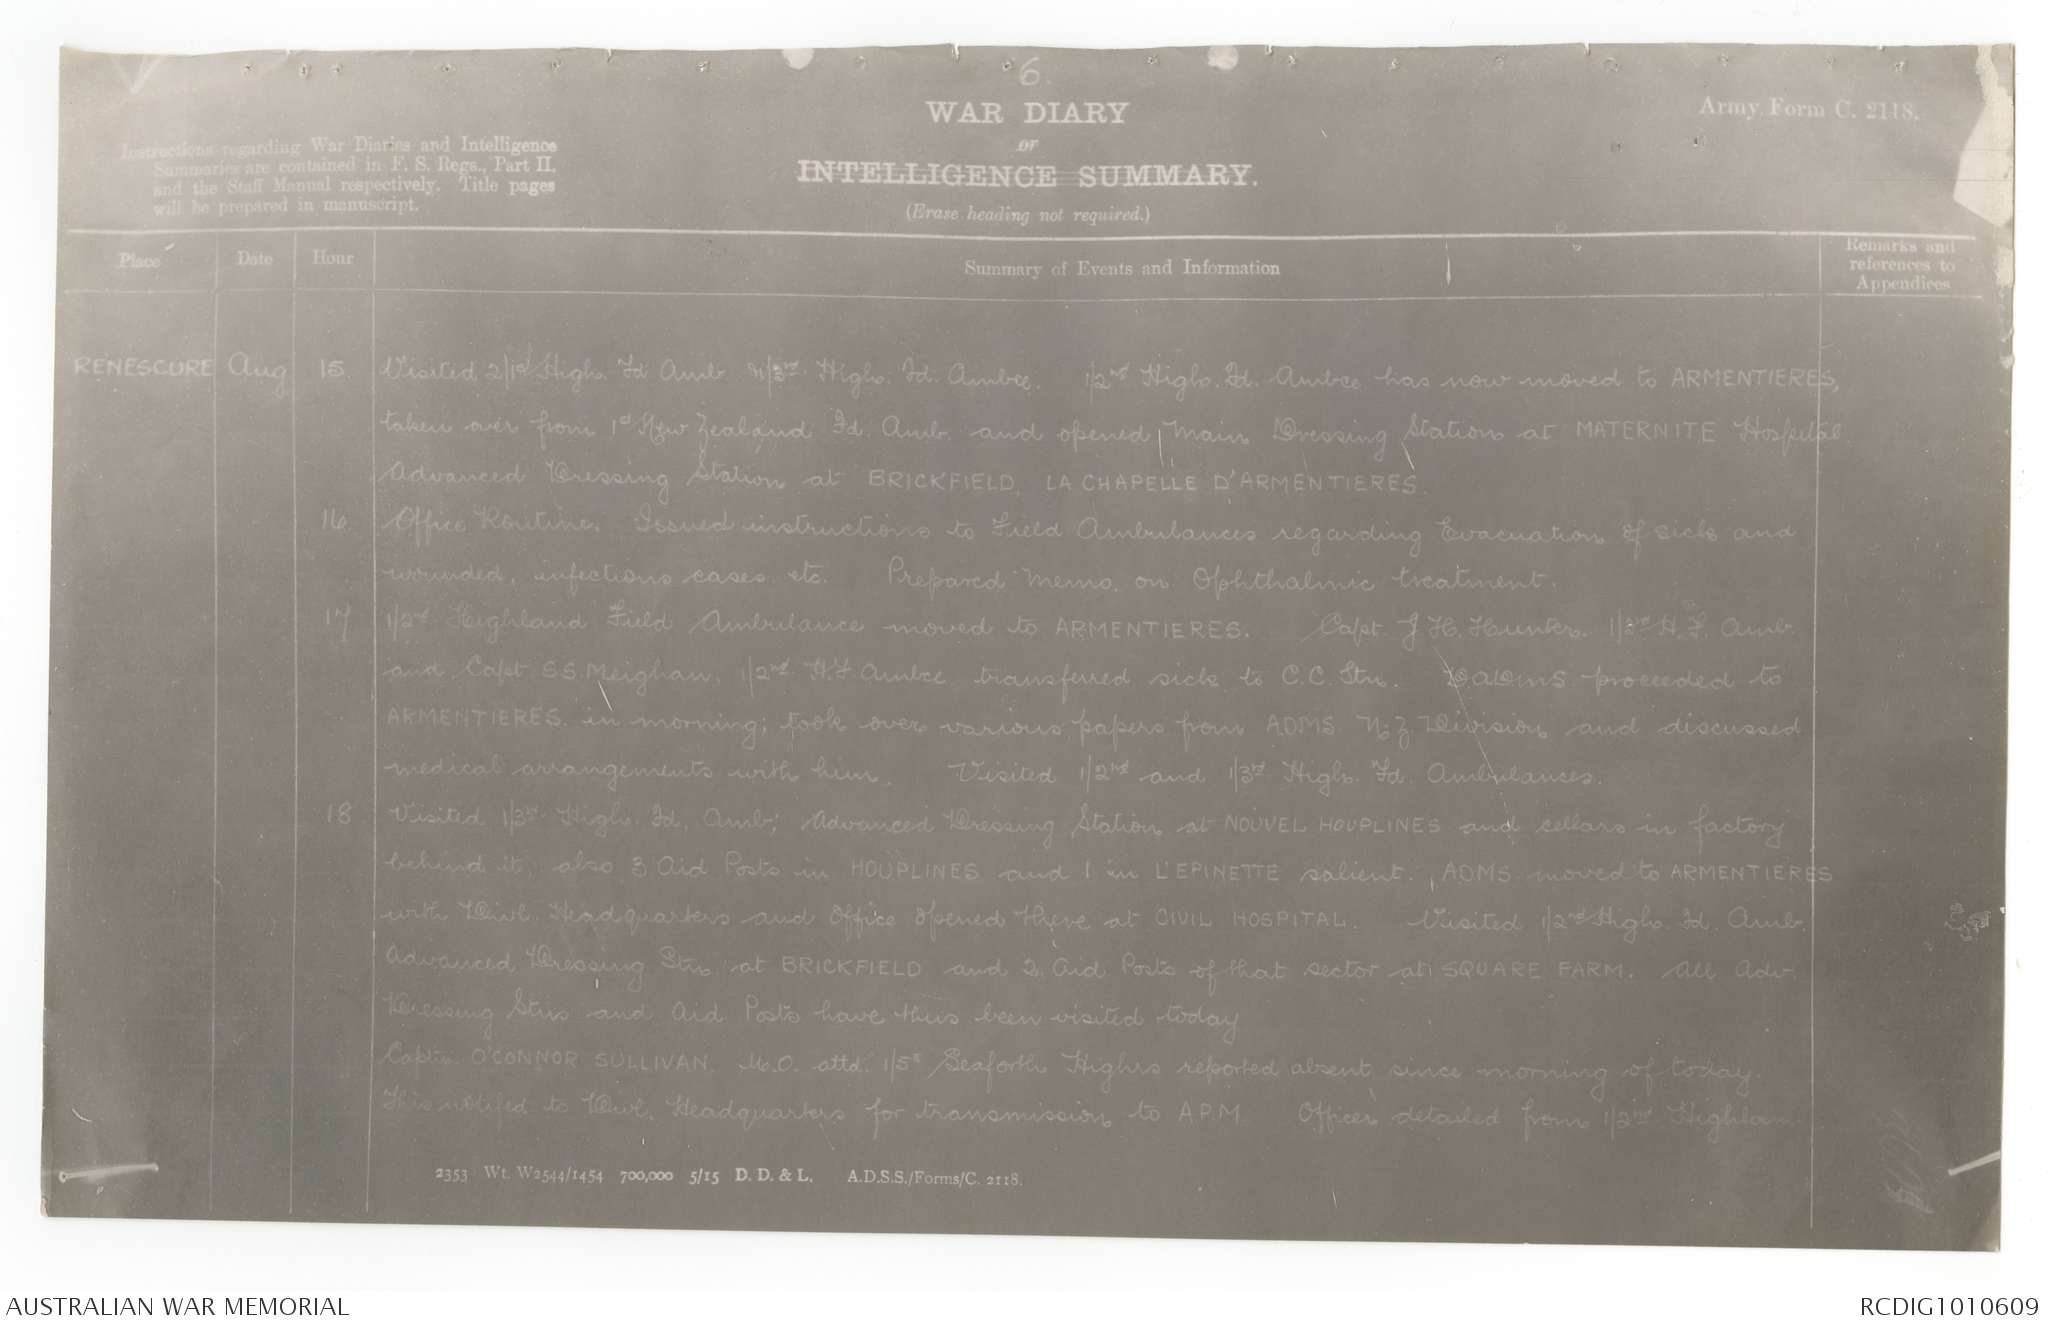 6.
WAR DIARY
or
INTELLIGENCE SUMMARY.
(Erase heading not required.)
Army Form C. 2118.
Instructions regarding War Diaries and Intelligence
Summaries are contained in F. S. Regs., Part II.
and the Staff Manual respectively. Title pages
will be prepared in manuscript.
Place Date Hour Summary of Events and Information Remarks and references to Appendices
RENESCURE Aug 15. Visited 2/1st High. Fd Amb 1/3rd High. Fd. Ambce. 1/2nd High. Fd. Ambce has now moved to ARMENTIERES,
taken over from 1st New Zealand Fd. Amb. and opened Main Dressing Station at MATERNITE Hospital
Advanced Dressing Station at BRICKFIELD, LA CHAPELLE D'ARMENTIERES.
16. Office Routine. Issued instructions to Field Ambulances regarding Evacuation of sick and
wounded, infections cases etc. Prepared Memo. on Ophthalmic treatment.
17 1/2nd Highland Field Ambulance moved to ARMENTIERES. Capt. J H. Hunter. H. F. Amb.
and Capt S S. Meighan, 1/2nd H.F Ambce transferred sick to C.C. Stn. DADMS proceeded to
ARMENTIERES. in morning; took over various papers from ADMS. N.Z. Division and discussed
medical arrangements with him. Visited 1/2nd and 1/3rd High. Fd. Ambulances.
18 Visited 1/3rd High. Fd. Amb; Advanced Dressing Station at NOUVEL HOUPLINES and cellars in factory
behind it, also 3 Aid Posts in HOUPLINES and 1 in L'EPINETTE salient. ADMS. moved to ARMENTIERES
with Divl. Headquarters and Office opened there at CIVIL HOSPITAL. Visited 1/2nd High. Fd. Amb.
Advanced Dressing Stn at BRICKFIELD and 2 Aid Posts of that sector at SQUARE FARM. All Adv.
Dressing Stns and Aid Posts have thus been visited today
Captn. O'CONNOR SULLIVAN. M.O. attd. 1/5th Seaforth Highrs reported absent since morning of today.
This notified to Divl. Headquarters for transmission to A.P.M. Officer detailed from 1/2nd Highland
2353 Wt. W2544/1454 700,000 5/15 D. D. & L. A.D.S.S./Forms/C. 2118.
AUSTRALIAN WAR MEMORIAL
RCDIG1010609